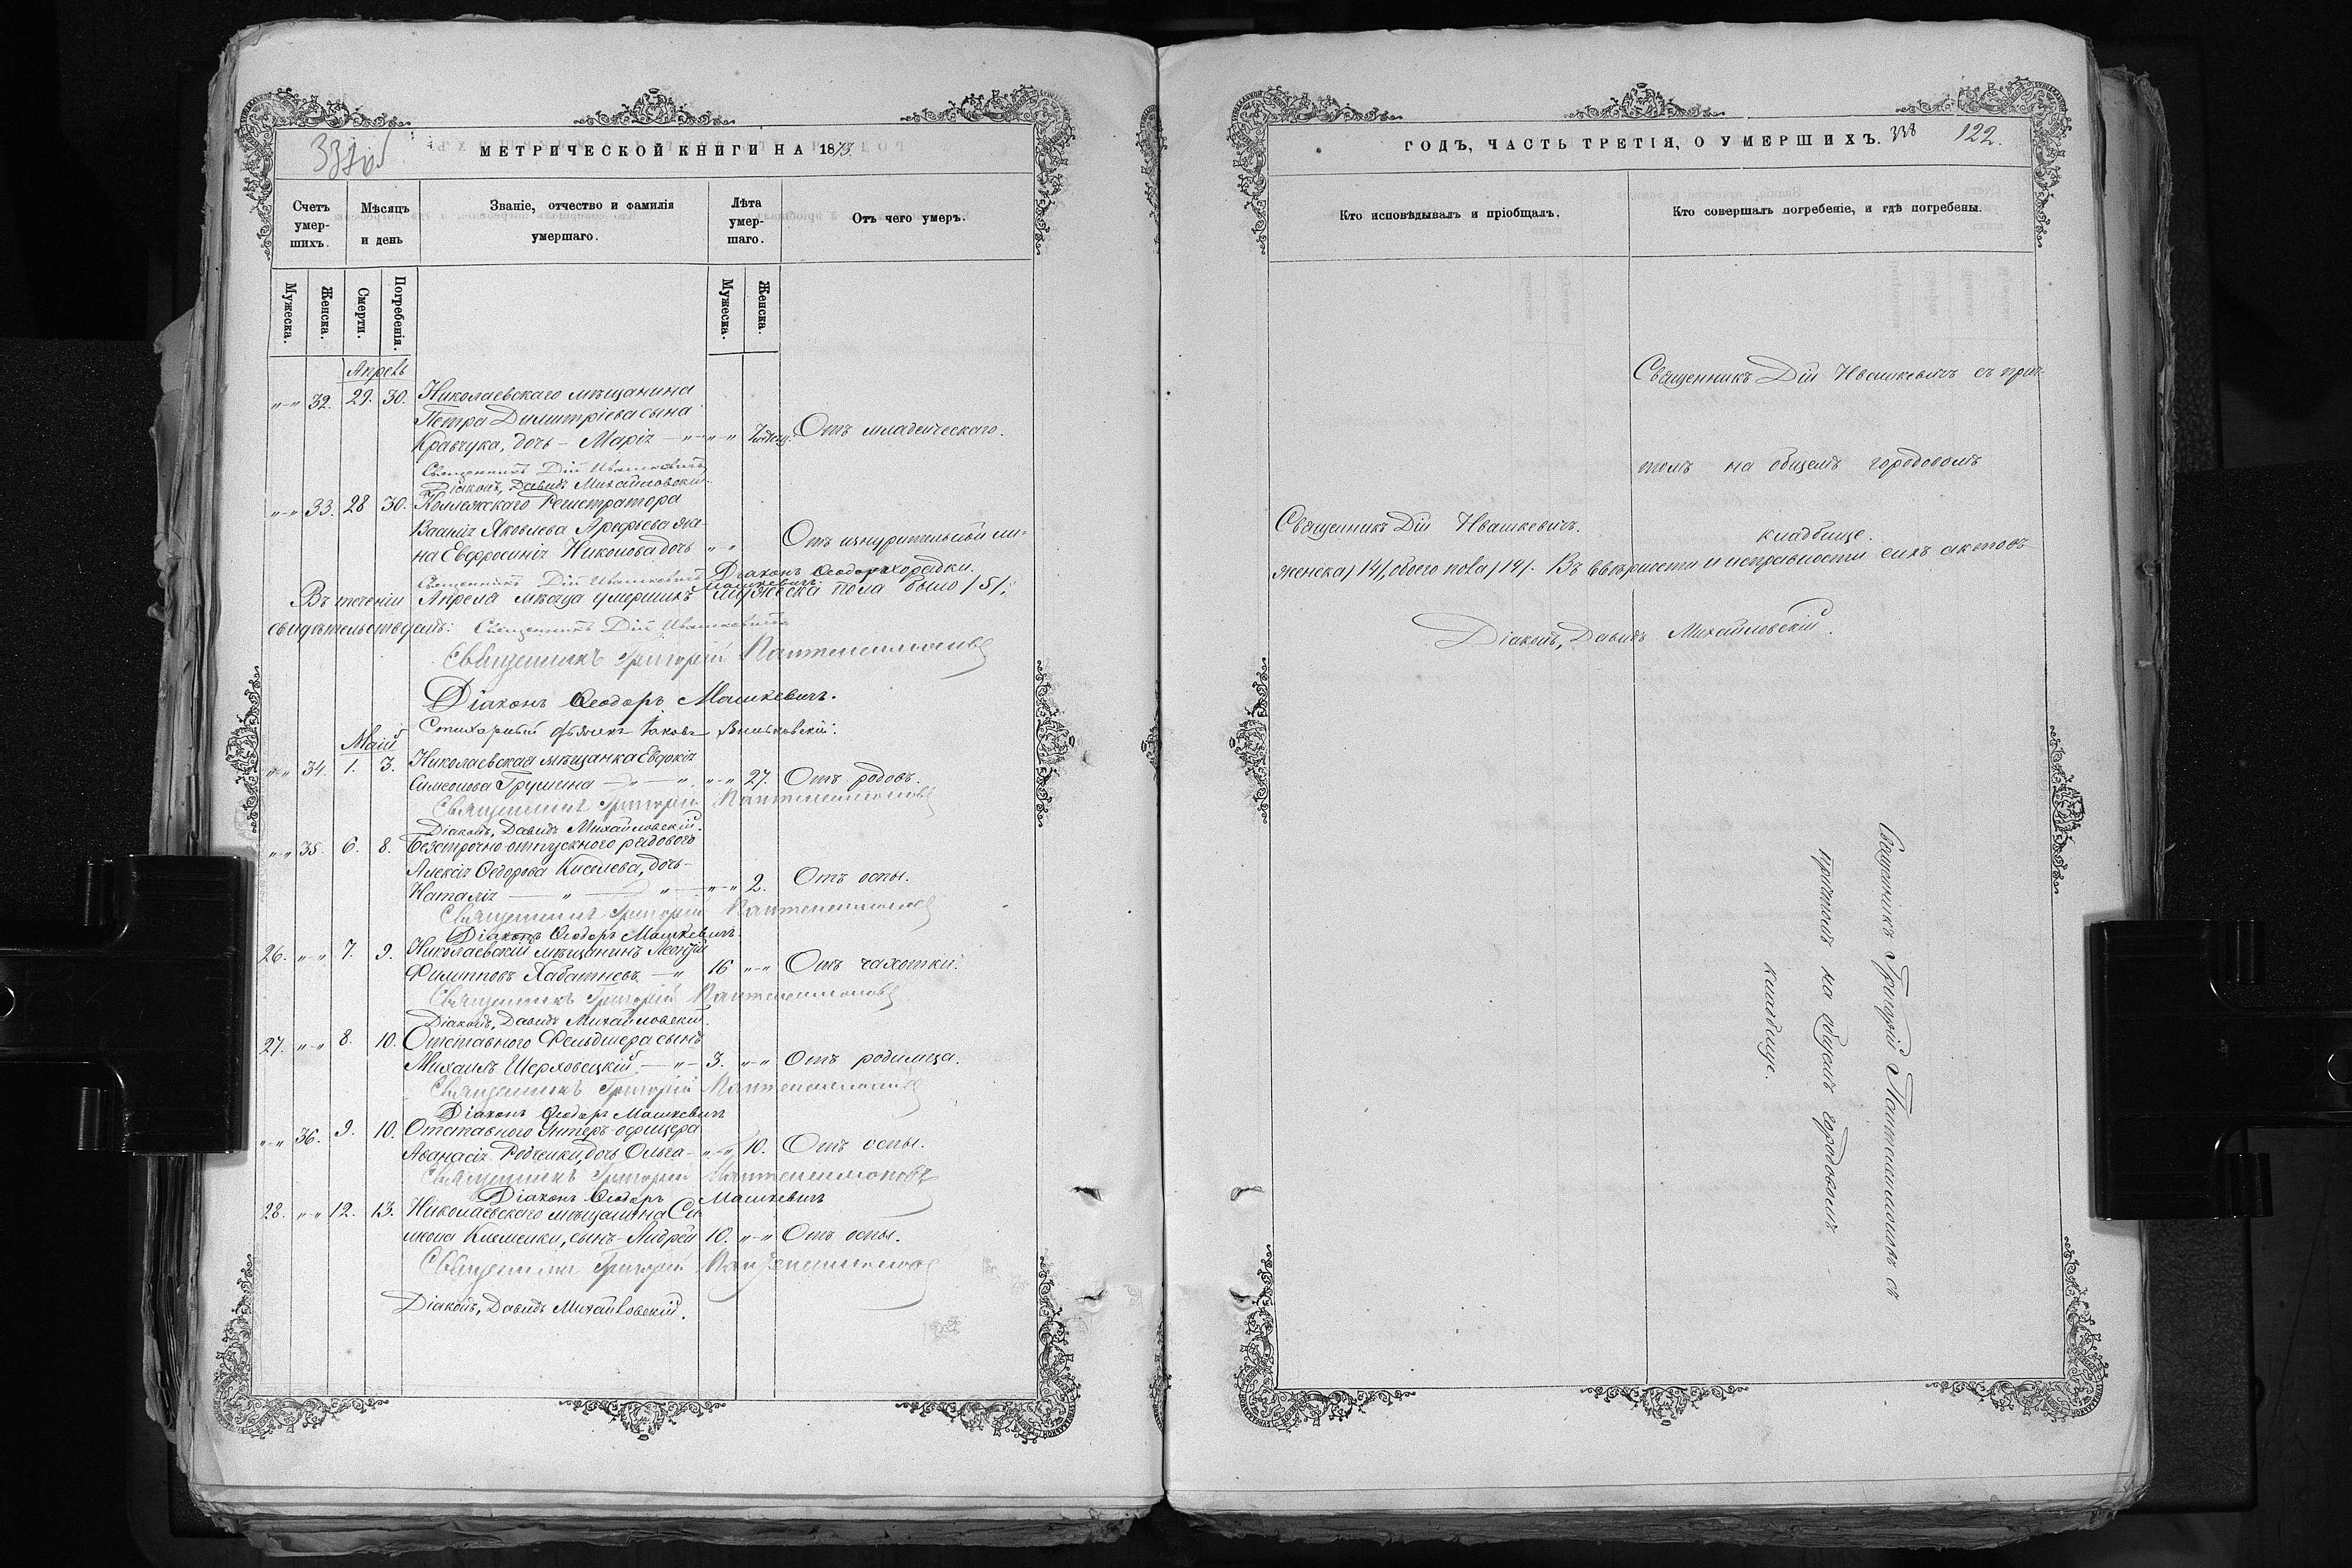 337 об
МЕТРИЧЕСКОЙ КНИГИ НА 1873.
Счетъ умер-шихъ.
Мѣсяцъ и день
Званіе, отчество и фамилія умершаго.
Лѣта умер-шаго.
Отъ чего умеръ.
Мужеска.
Женска.
Смерти.
Погребенія.
Мужеска.
Женска.
Апрель
„–„ 32. 29. 30. Николаевскаго мѣщанина
Петра Димитріева сына
Кравчука, дочь – Марія –„– „–„ Отъ младенческаго.
Священникъ Дій Ивашкевичъ
Діаконъ, Давидъ Михайловскій.
„–„ 33. 28 30. Коллежскаго Регистратора
Василія Яковлева Арефьева же-
на Евфросинія Николова дочь „ „ Отъ изнурительной ли-
хорадки.
Священникъ Дій Ивашкевичъ Діаконъ Ѳеодоръ
Машкевичъ.
Въ теченіи Апреля мѣсяца умершихъ мужеска пола было /5/,
свидѣтельствуемъ: Священникъ Дій Ивашкевичъ
Священникъ Григорій Пантелеимоновъ
Діаконъ Ѳеодоръ Машкевичъ.
Стихарный дьячекъ Іаковъ
Маій
„–„ 34. 1. 3. Николаевская мѣщанка Евдокія
Симеонова Грушина –„–„ „–„ 27. Отъ родовъ.
Священникъ Григорій Пантелеимоновъ
Діаконъ, Давидъ Михайловскій.
„–„ 35. 6. 8. Безсрочно-отпускного рядового
Алексія Ѳедорова Киселева, дочь–
Наталія –„–„– „–„ 2. Отъ оспы.
Священникъ Григорій Пантелеимоновъ
Діаконъ Ѳеодоръ Машкевичъ.
26. „–„ 7. 9. Николаевскій мѣщанинъ Леонтій
Филипповъ Хабатневъ –„ 16 „–„ Отъ чахотки.
Священникъ Григорій Пантелеимоновъ
Діаконъ, Давидъ Михайловскій.
27. „–„ 8. 10. Отставного Фельдшера сынъ
Михаилъ Шерховецкій –„– 3. „–„ Отъ родимца.
Священникъ Григорій Пантелеимоновъ
Діаконъ Ѳеодоръ Машкевичъ
„–„ 36. 9. 10. Отставного Унтеръ-офицера
Аѳанасія Родченки, дочь Ольга– „–„ 10. Отъ оспы.
Священникъ Григорій Пантелеимоновъ
Діаконъ Ѳеодоръ Машкевичъ
28. „–„ 12. 13. Николаевскаго мѣщанина Си-
меона Клименки, сынъ–Андрей 10. „–„ Отъ оспы.
Священникъ Григорій Пантелеимоновъ
Діаконъ, Давидъ Михайловскій.
ГОДЪ, ЧАСТЬ ТРЕТІЯ, О УМЕРШИХЪ. 338 122.
Кто исповѣдывалъ и пріобщалъ.
Кто совершалъ погребеніе, и гдѣ погребены.
Священникъ Дій Ивашкевичъ съ прич-
томъ на общемъ городовомъ
кладбище.
Священникъ Дій Ивашкевичъ.
женска /14/, обоего пола /19/. Въ вѣрности и исправности сихъ актовъ
Діаконъ, Давидъ Михайловскій.
Священникъ Григорій Пантелеимоновъ съ
причтомъ на общемъ городовомъ
кладбище.